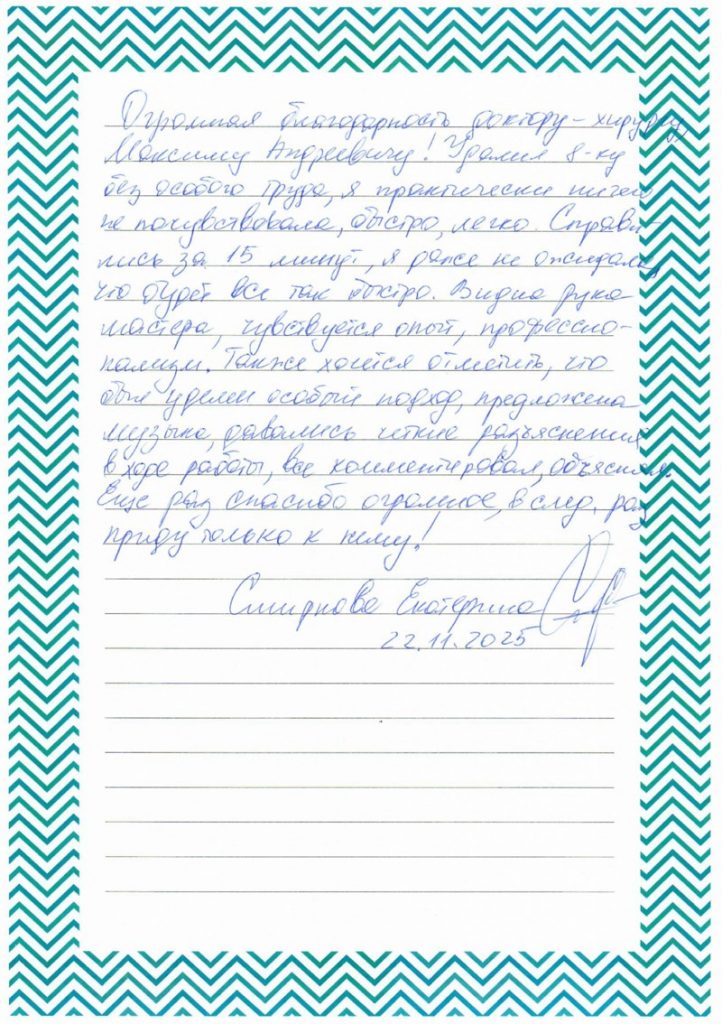 Огромная благодарность доктору-хирургу
Максиму Андреевичу! Удалил 8-ку
без особого труда, я практически ничего
не почувствовала, быстро, легко. Справи-
лись за 15 минут, я даже не ожидала,
что будет все так быстро. Видна рука
мастера, чувствуется опыт, профессио-
нализм. Также хочется отметить, что
был уделен особый подход, предложена
музыка, давались четкие разъяснения
в ходе работы, все комментировал, объяснял.
Еще раз спасибо огромное, в след. раз
приду только к нему!
Смирнова Екатерина
22.11.2025